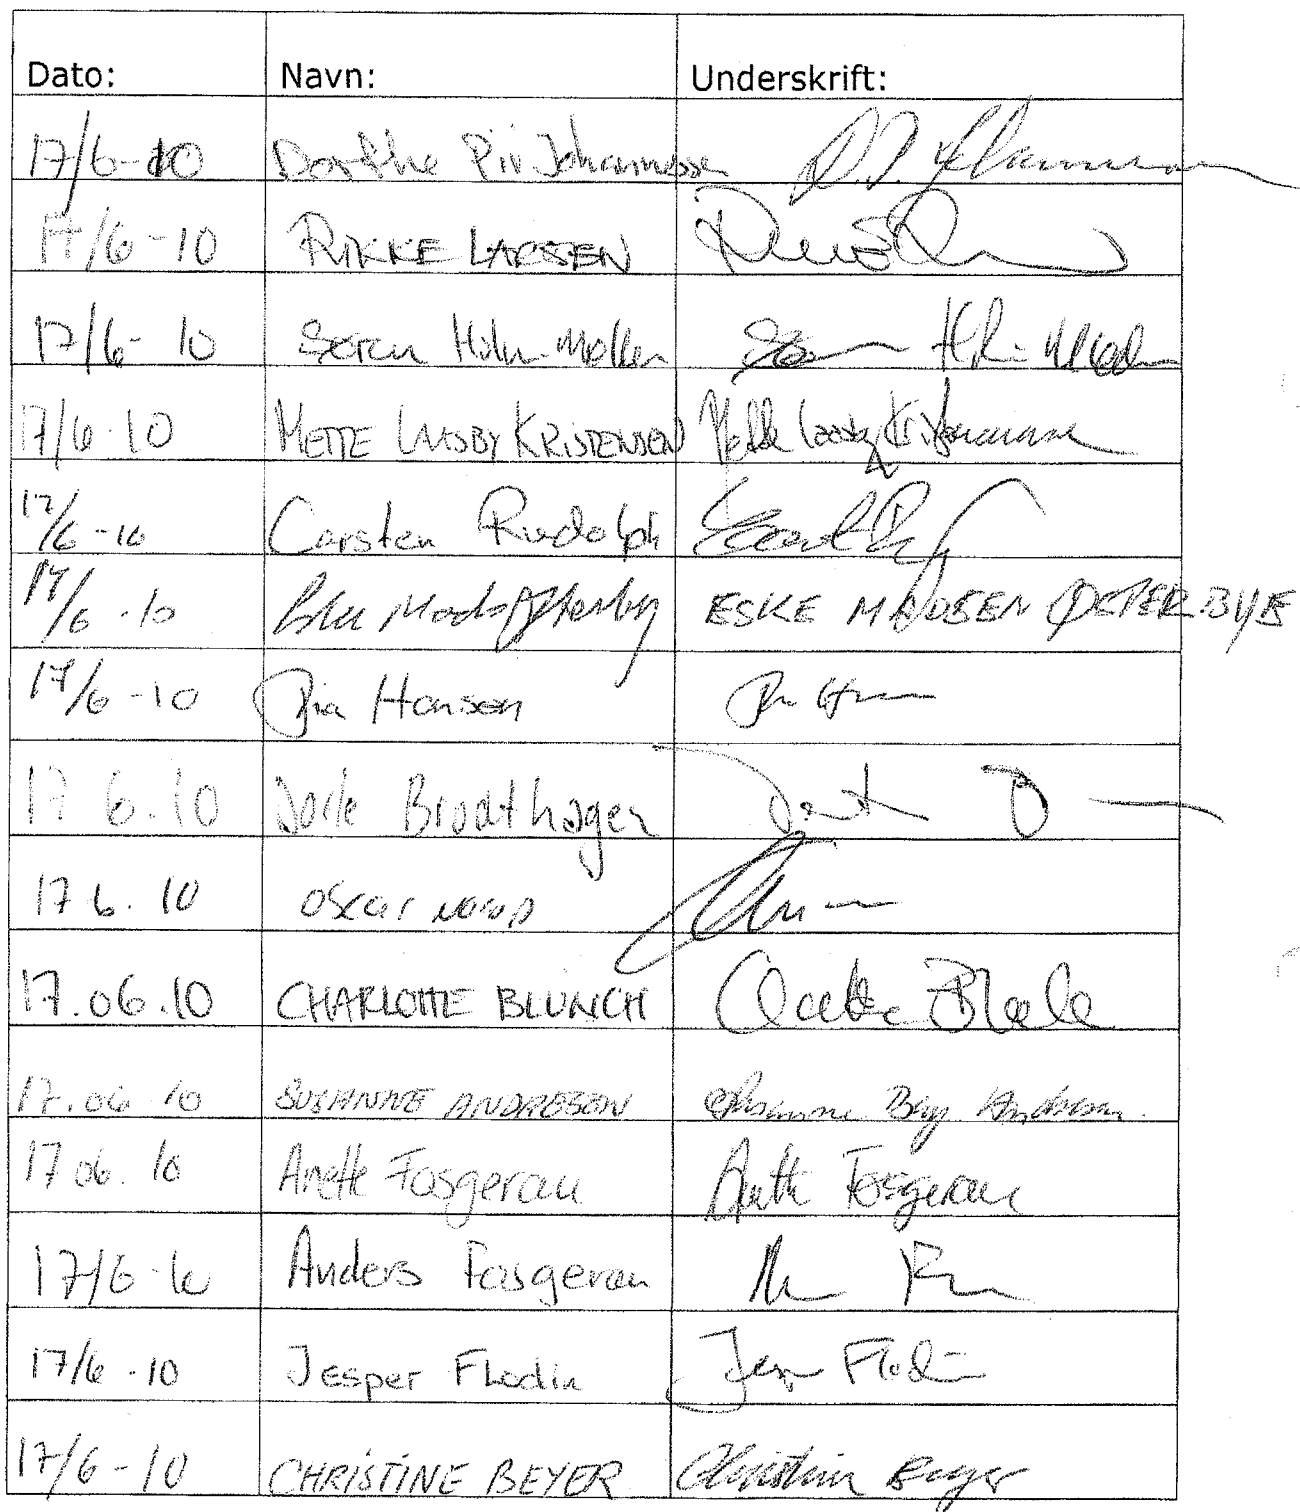 Dato: Navn: Underskrift:
17/6-10 Dorthe Piv Johannessen D.P. Johannessen
17/6-10 RIKKE LARSEN
17/6-10 Søren Holm-Møller Søren Holm Møller
17/6-10 METTE LAASBY KRISTENSEN Mette Laasby Kristensen
17/6-10 Carsten Rudolph
17/6-10 ESKE MADSEN ØSTERBYE
17/6-10 Pia Hansen Pia
17 6.10 Dorte Brodthagen
17 6.10 Oscar
17.06.10 CHARLOTTE BLUNCH
17.06.10 SUSANNE ANDRESEN Susanne Bay Andresen
17 06.10 Anette Fosgerau Anette Fosgerau
17/6-10 Anders Fosgerau
17/6-10 Jesper Flodin Jesper Flodin
17/6-10 CHRISTINE BEYER Christine Beyer